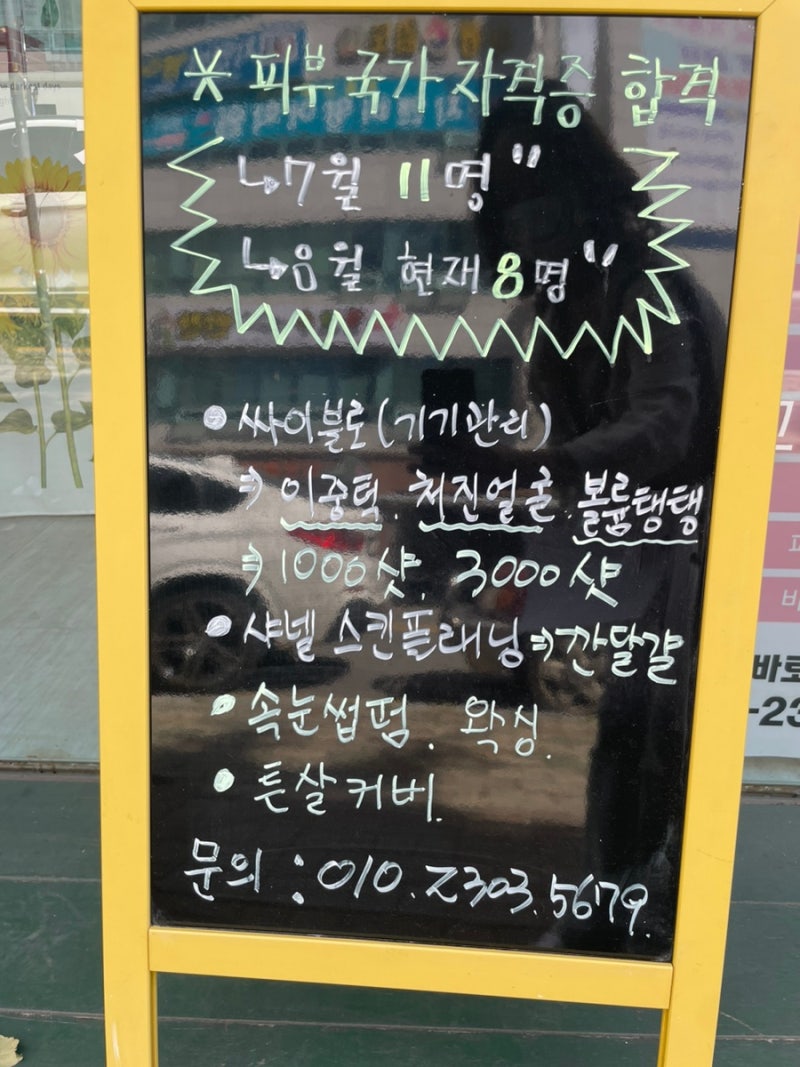 * 피부 국가 자격증 합격
↳ 7월 11명"
↳ 8월 현재 8명"
• 싸이블로(기기관리)
⇒ 이중턱. 처진얼굴. 볼륨탱탱
⇒ 1000샷. 3000샷
• 샤넬 스킨플래닝 ⇒ 깐달걀
• 속눈썹펌. 왁싱.
• 튼살커버.
문의 : 010.2303.5679.
바로
-23